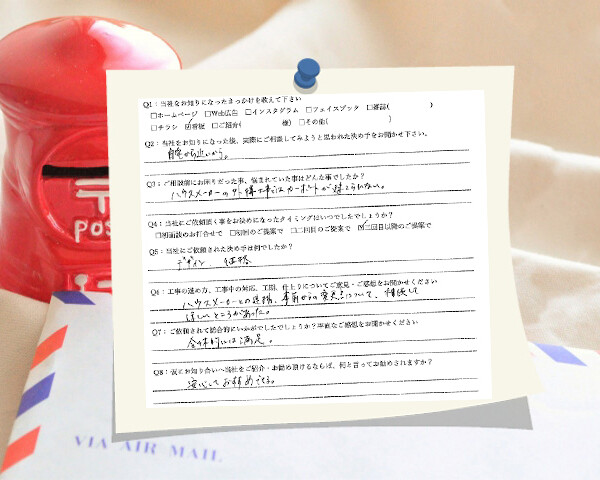 POS
Q1：当社をお知りになったきっかけを教えて下さい
□ホームページ □Web広告 □インスタグラム □フェイスブック □雑誌( )
□チラシ ☑看板 □ご紹介( 様) □その他( )
Q2：当社をお知りになった後、実際にご相談してみようと思われた決め手をお聞かせ下さい。
自宅から近いから。
Q3：ご相談前にお困りだった事、悩まれていた事はどんな事でしたか？
ハウスメーカーの外構工事ではカーポートが建てられない。
Q4：当社にご依頼頂く事をお決めになったタイミングはいつでしたでしょうか？
□初面談のお打合せで □初回のご提案で □二回目のご提案で ☑三回目以降のご提案で
Q5：当社にご依頼された決め手は何でしたか？
デザイン 価格
Q6：工事の進め方、工事中の対応、工期、仕上りについてご意見・ご感想をお聞かせください
ハウスメーカーとの連携、事前からの変更点について、確認して
ほしいところがあった。
Q7：ご依頼されて総合的にいかがでしたでしょうか？率直なご感想をお聞かせください
全体的には満足。
Q8：仮にお知り合いへ当社をご紹介・お勧め頂けるならば、何と言ってお勧めされますか？
安心してお勧めできる。
VIA AIR MAIL